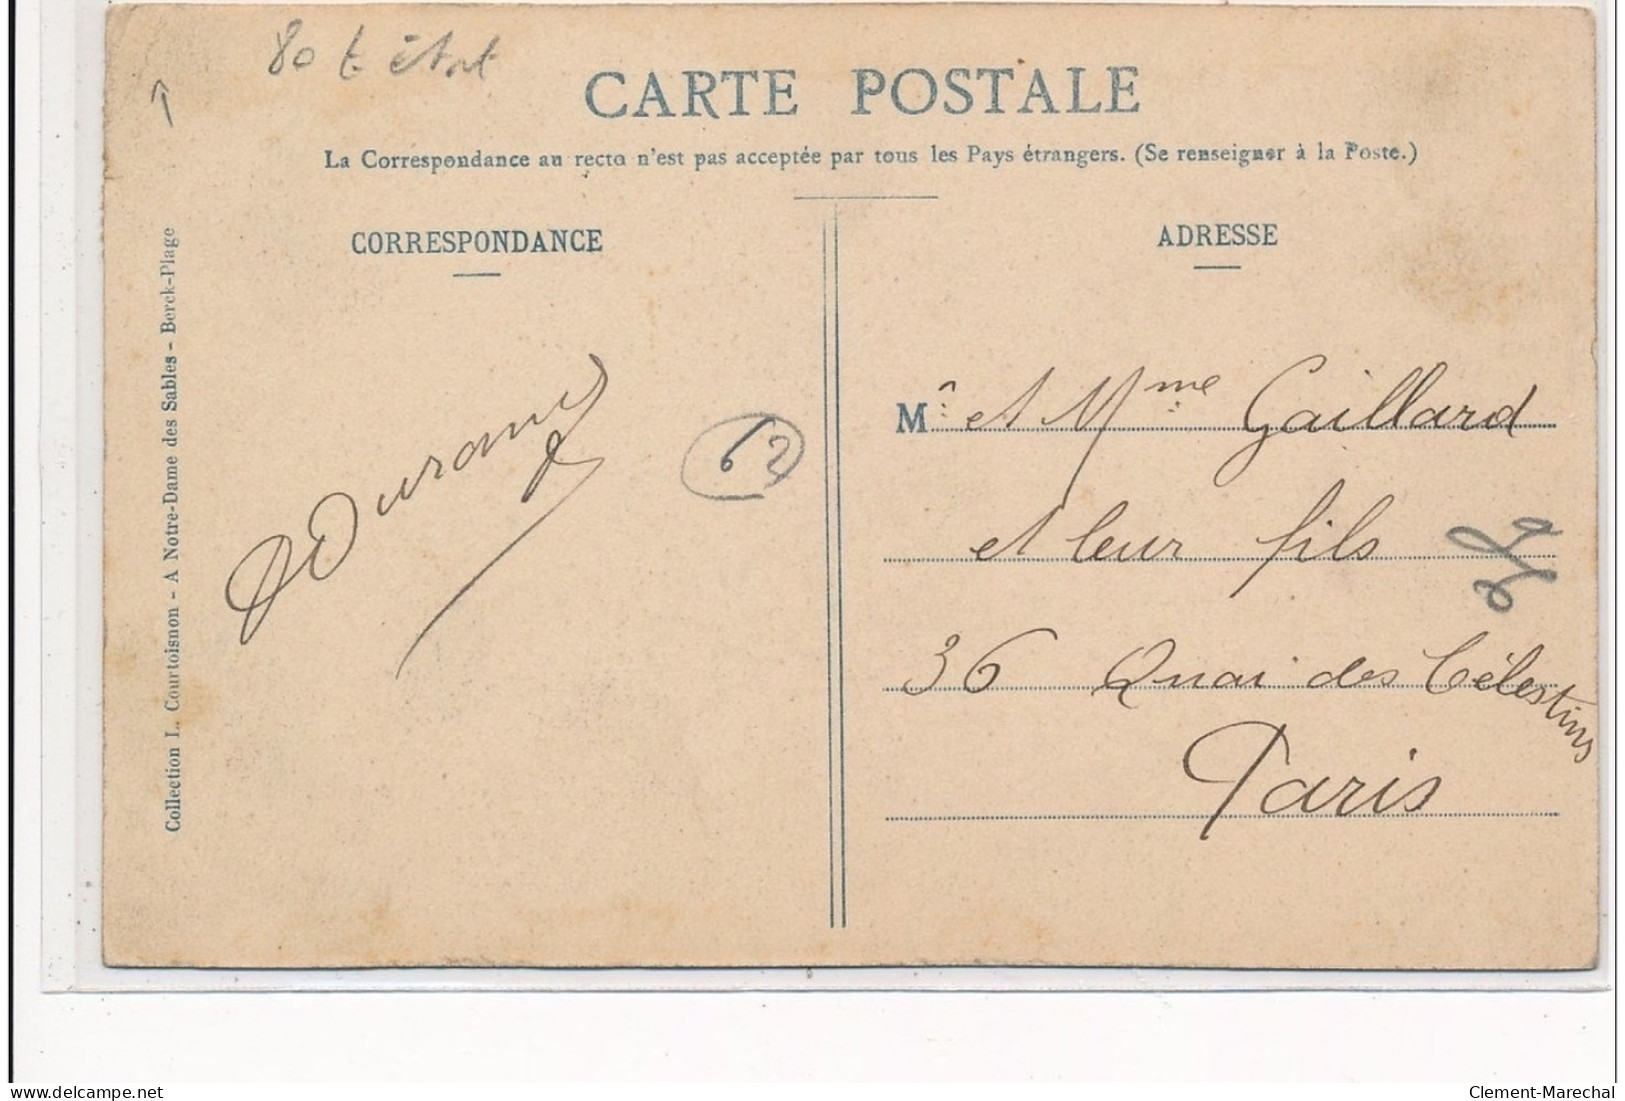 80 t état
CARTE POSTALE
La Correspondance au recto n'est pas acceptée par tous les Pays étrangers. (Se renseigner à la Poste.)
CORRESPONDANCE
ADRESSE
Collection L. Courtoisnon - A Notre-Dame des Sables - Berck-Plage
62
Mr et Mme Gaillard
et leur fils
36 Quai des Célestins
Paris
delcampe.net
Clement-Marechal